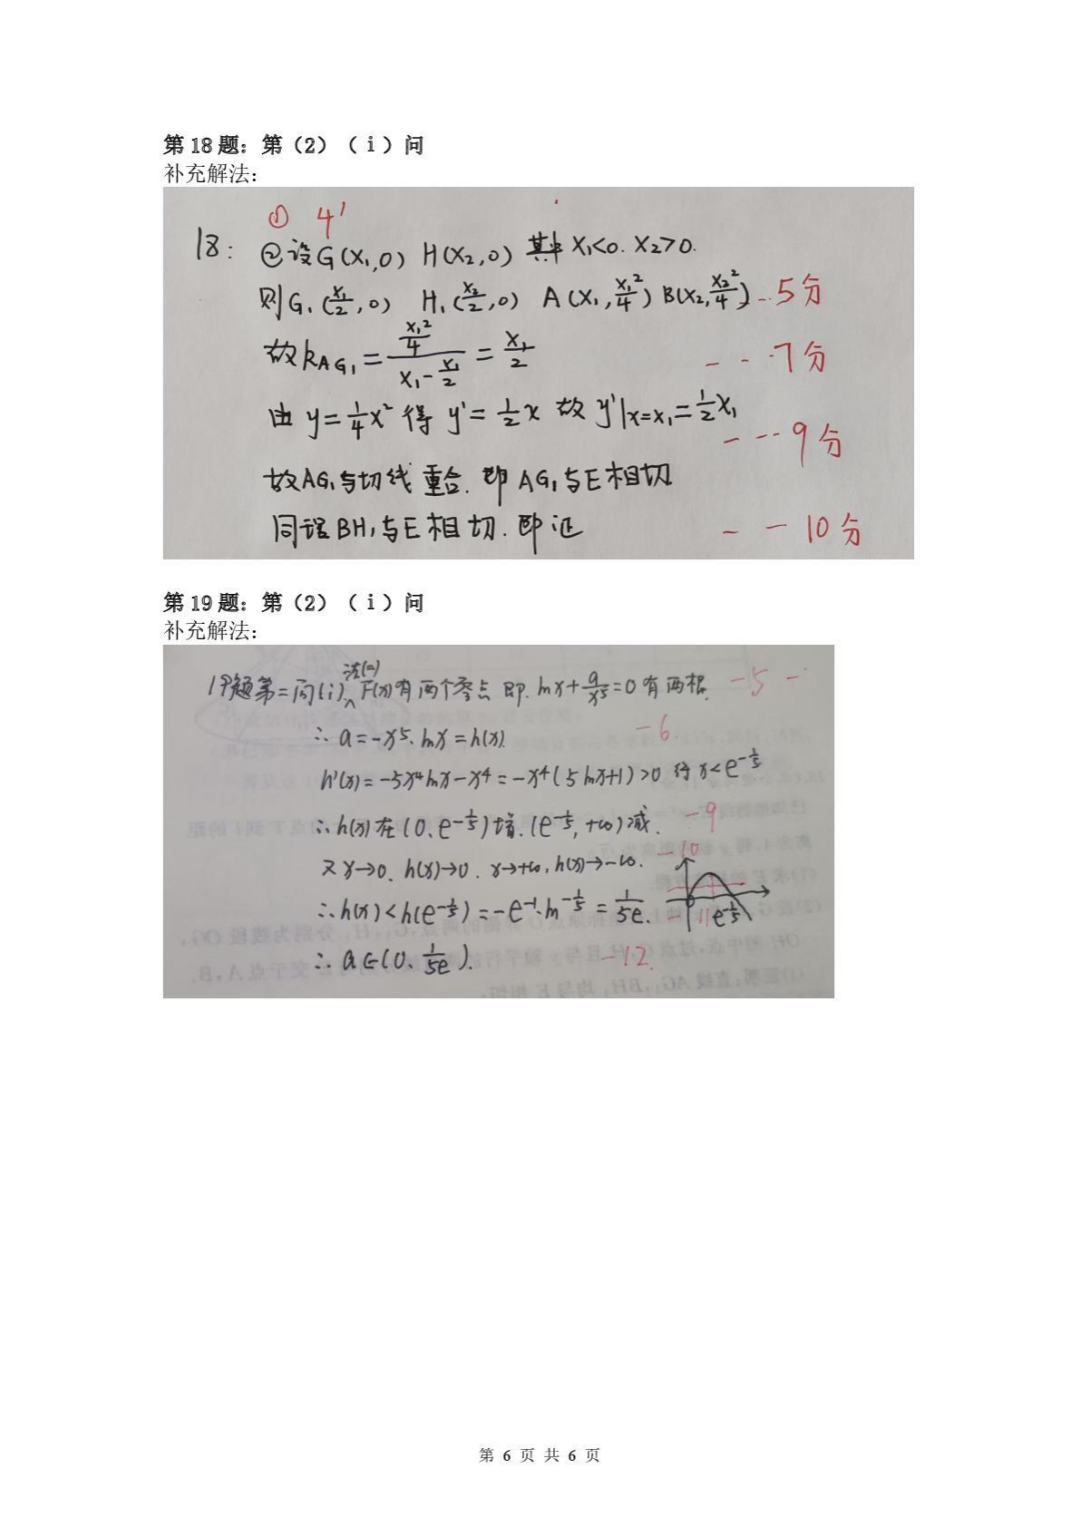 第 18 题：第（2）（ⅰ）问
补充解法：
① 4'
18: ②设G(x₁,0) H(x₂,0) 其中 x₁<0. x₂>0.
则G₁(x₁/2,0) H₁(x₂/2,0) A(x₁,x₁²/4) B(x₂,x₂²/4) --5分
故kAG₁=(x₁²/4)/(x₁-x₁/2)=x₁/2 ---7分
由 y=1/4x² 得 y'=1/2x 故 y'|x=x₁=1/2x₁
---9分
故AG₁与切线重合. 即 AG₁与E相切
同理BH₁与E相切. 即证 --10分
第 19 题：第（2）（ⅰ）问
补充解法：
法(二)
19题第二问(i) F(x)有两个零点 即. lnx+a/x⁵=0有两根. -5-
∴a=-x⁵·lnx=h(x). -6
h'(x)=-5x⁴lnx-x⁴=-x⁴(5lnx+1)>0 得 x<e^(-1/5)
∴h(x)在(0,e^(-1/5))增.(e^(-1/5),+∞)减. -9
又x→0. h(x)→0. x→+∞, h(x)→-∞. -10
∴h(x)<h(e^(-1/5))=-e⁻¹·ln^(-1/5)=1/5e. -11 e^(-1/5)
∴a∈(0, 1/5e). -12.
第 6 页 共 6 页